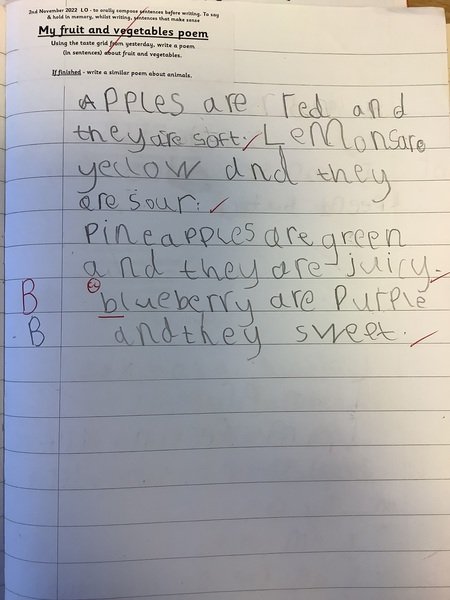 2nd November 2022 LO - to orally compose sentences before writing. To say
& hold in memory, whilst writing, sentences that make sense
My fruit and vegetables poem
Using the taste grid from yesterday, write a poem
(in sentences) about fruit and vegetables.
If finished - write a similar poem about animals.
Apples are red and
they are soft. Lemons are
yellow and they
are sour.
Pineapples are green
and they are juicy.
B blueberry are purple
B and they sweet.